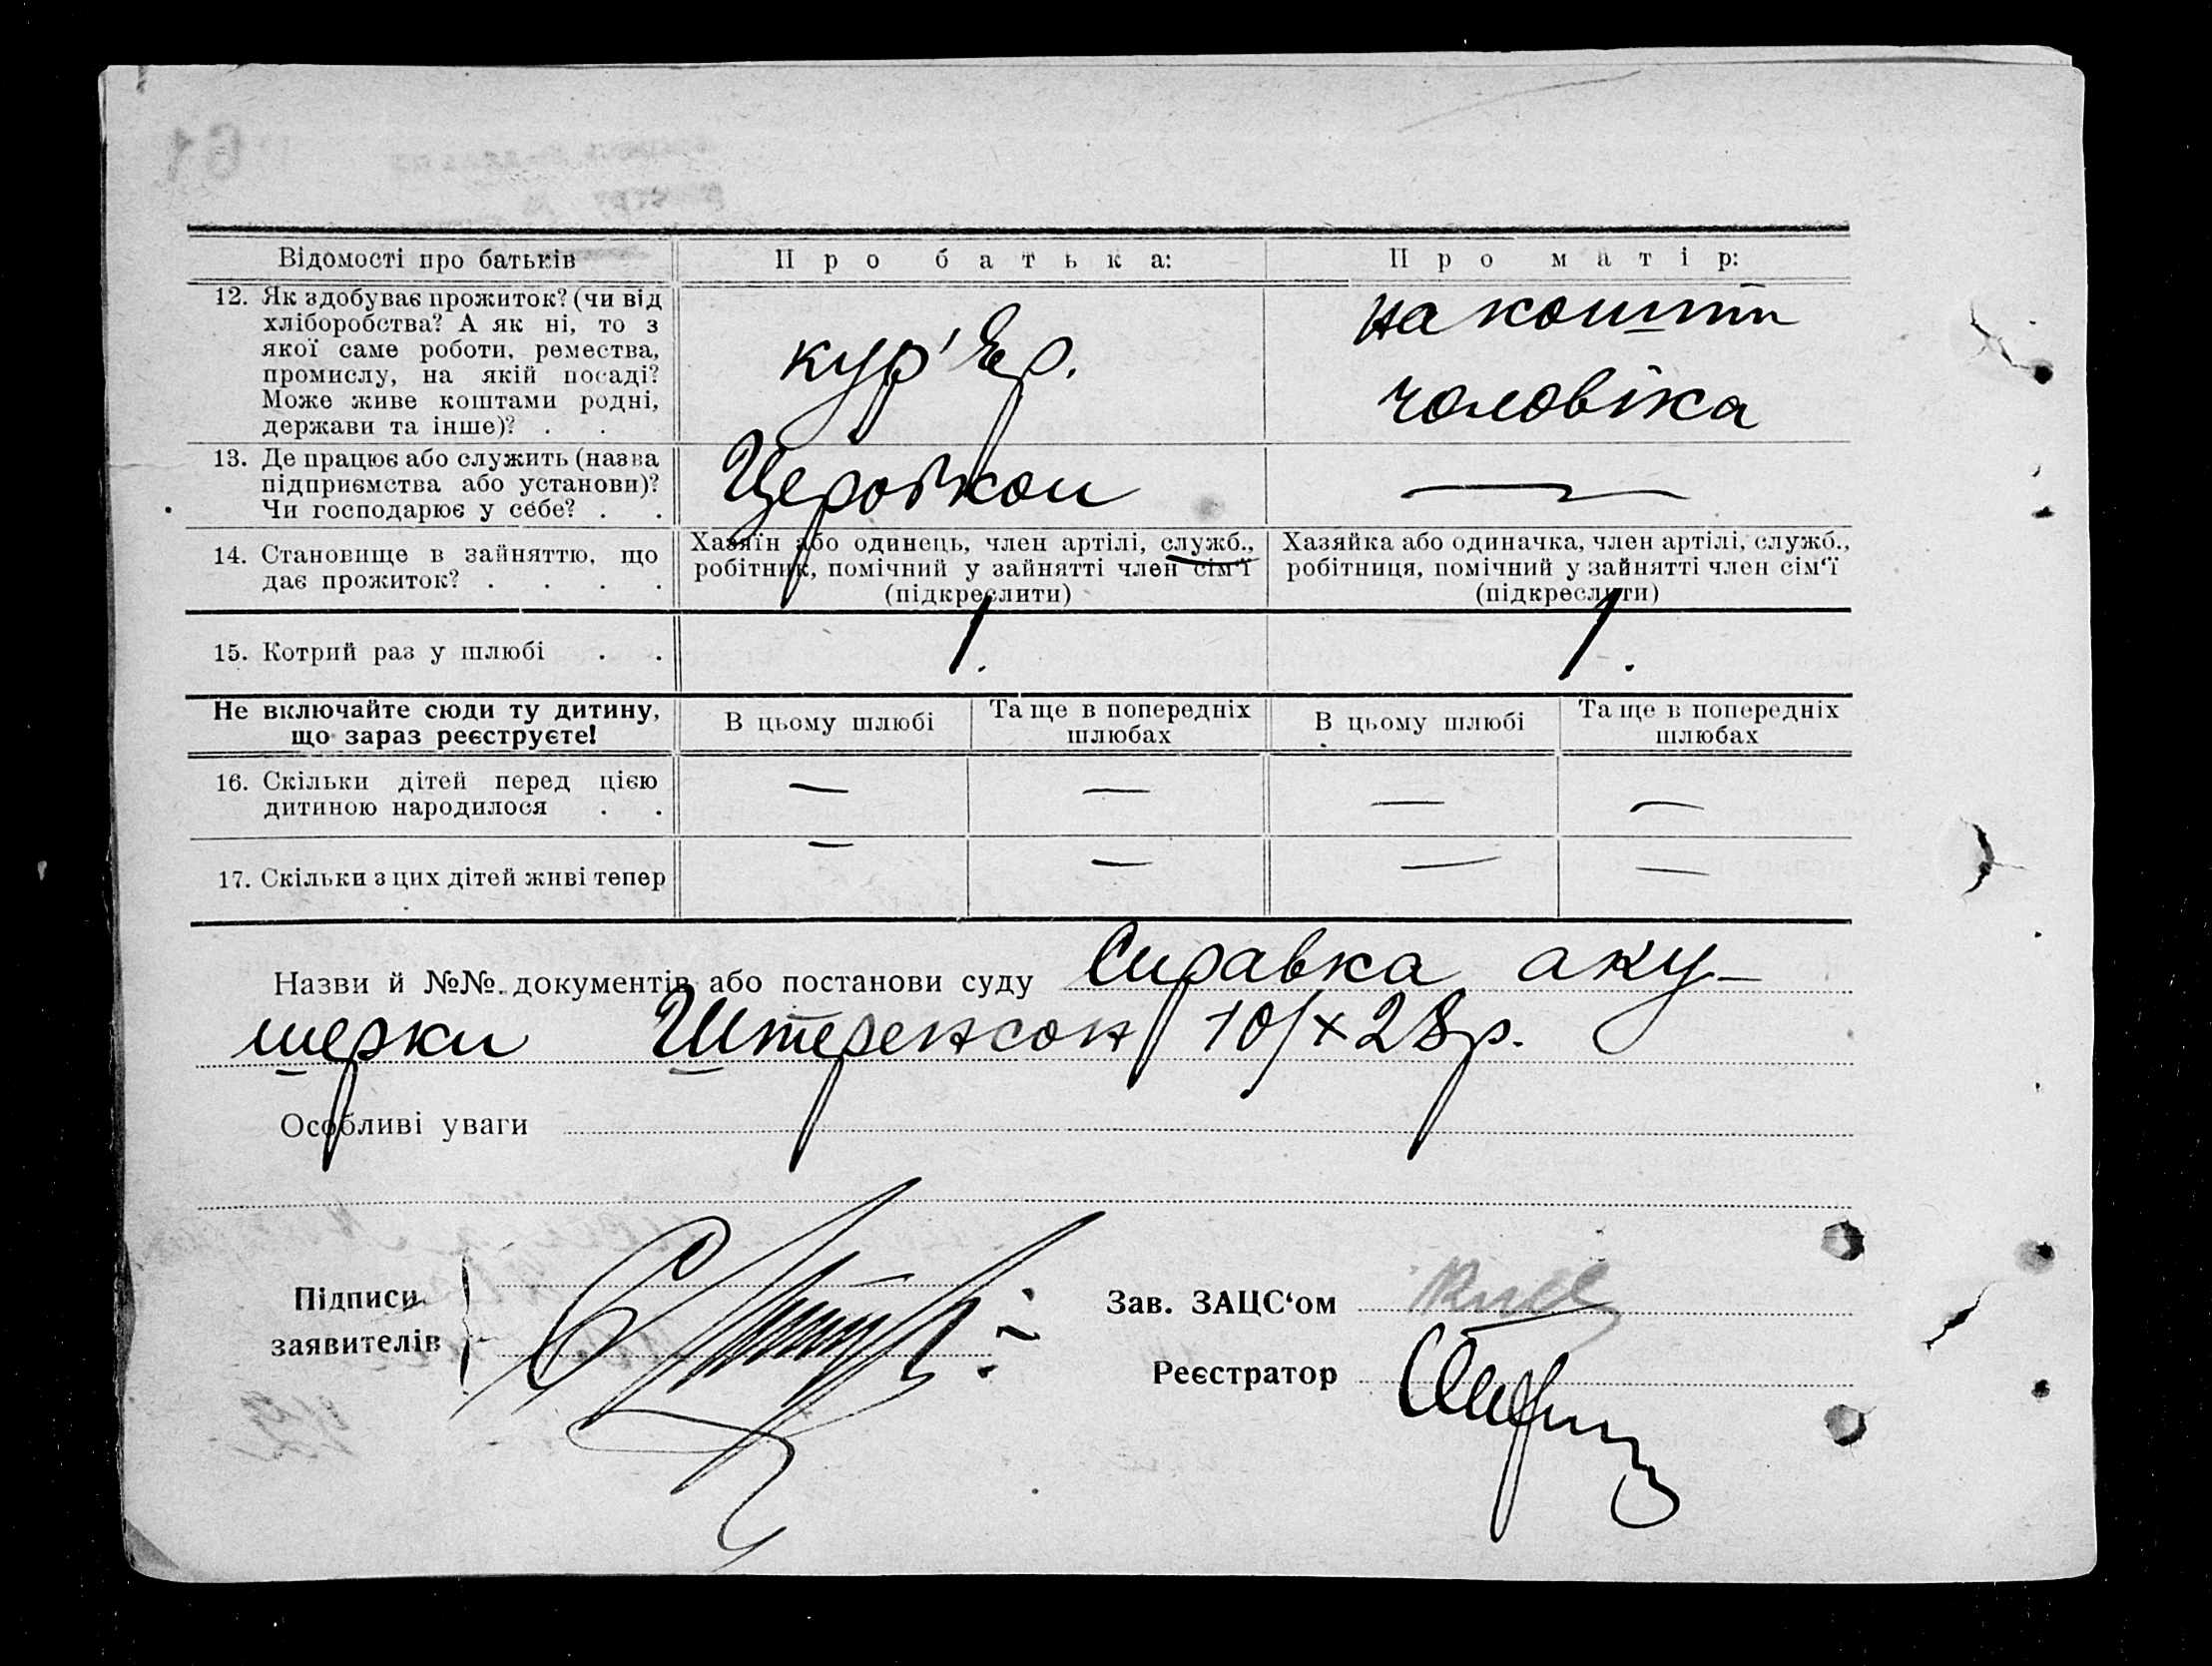 Відомості про батьків
Про батька:
Про матір:
12. Як здобуває прожиток? (чи від
хліборобства? А як ні, то з
якої саме роботи, ремества,
промислу, на якій посаді?
Може живе коштами родні,
держави та інше)? . .
кур'єр.
на кошти
чоловіка
13. Де працює або служить (назва
підприємства або установи)?
Чи господарює у себе? . .
—
14. Становище в зайняттю, що
дає прожиток? . . . .
Хазяїн або одинець, член артілі, служб.,
робітник, помічний у зайнятті член сім'ї
(підкреслити)
Хазяйка або одиначка, член артілі, служб.,
робітниця, помічний у зайнятті член сім'ї
(підкреслити)
15. Котрий раз у шлюбі . .
1.
1.
Не включайте сюди ту дитину,
що зараз реєструєте!
В цьому шлюбі
Та ще в попередніх
шлюбах
В цьому шлюбі
Та ще в попередніх
шлюбах
16. Скільки дітей перед цією
дитиною народилося . .
— — — —
17. Скільки з цих дітей живі тепер
— — — —
Назви й №№ документів або постанови суду Справка аку-
шерки Штеренсон 10/X 28 р.
Особливі уваги
Підписи
заявителів
Зав. ЗАЦС‘ом
Реєстратор